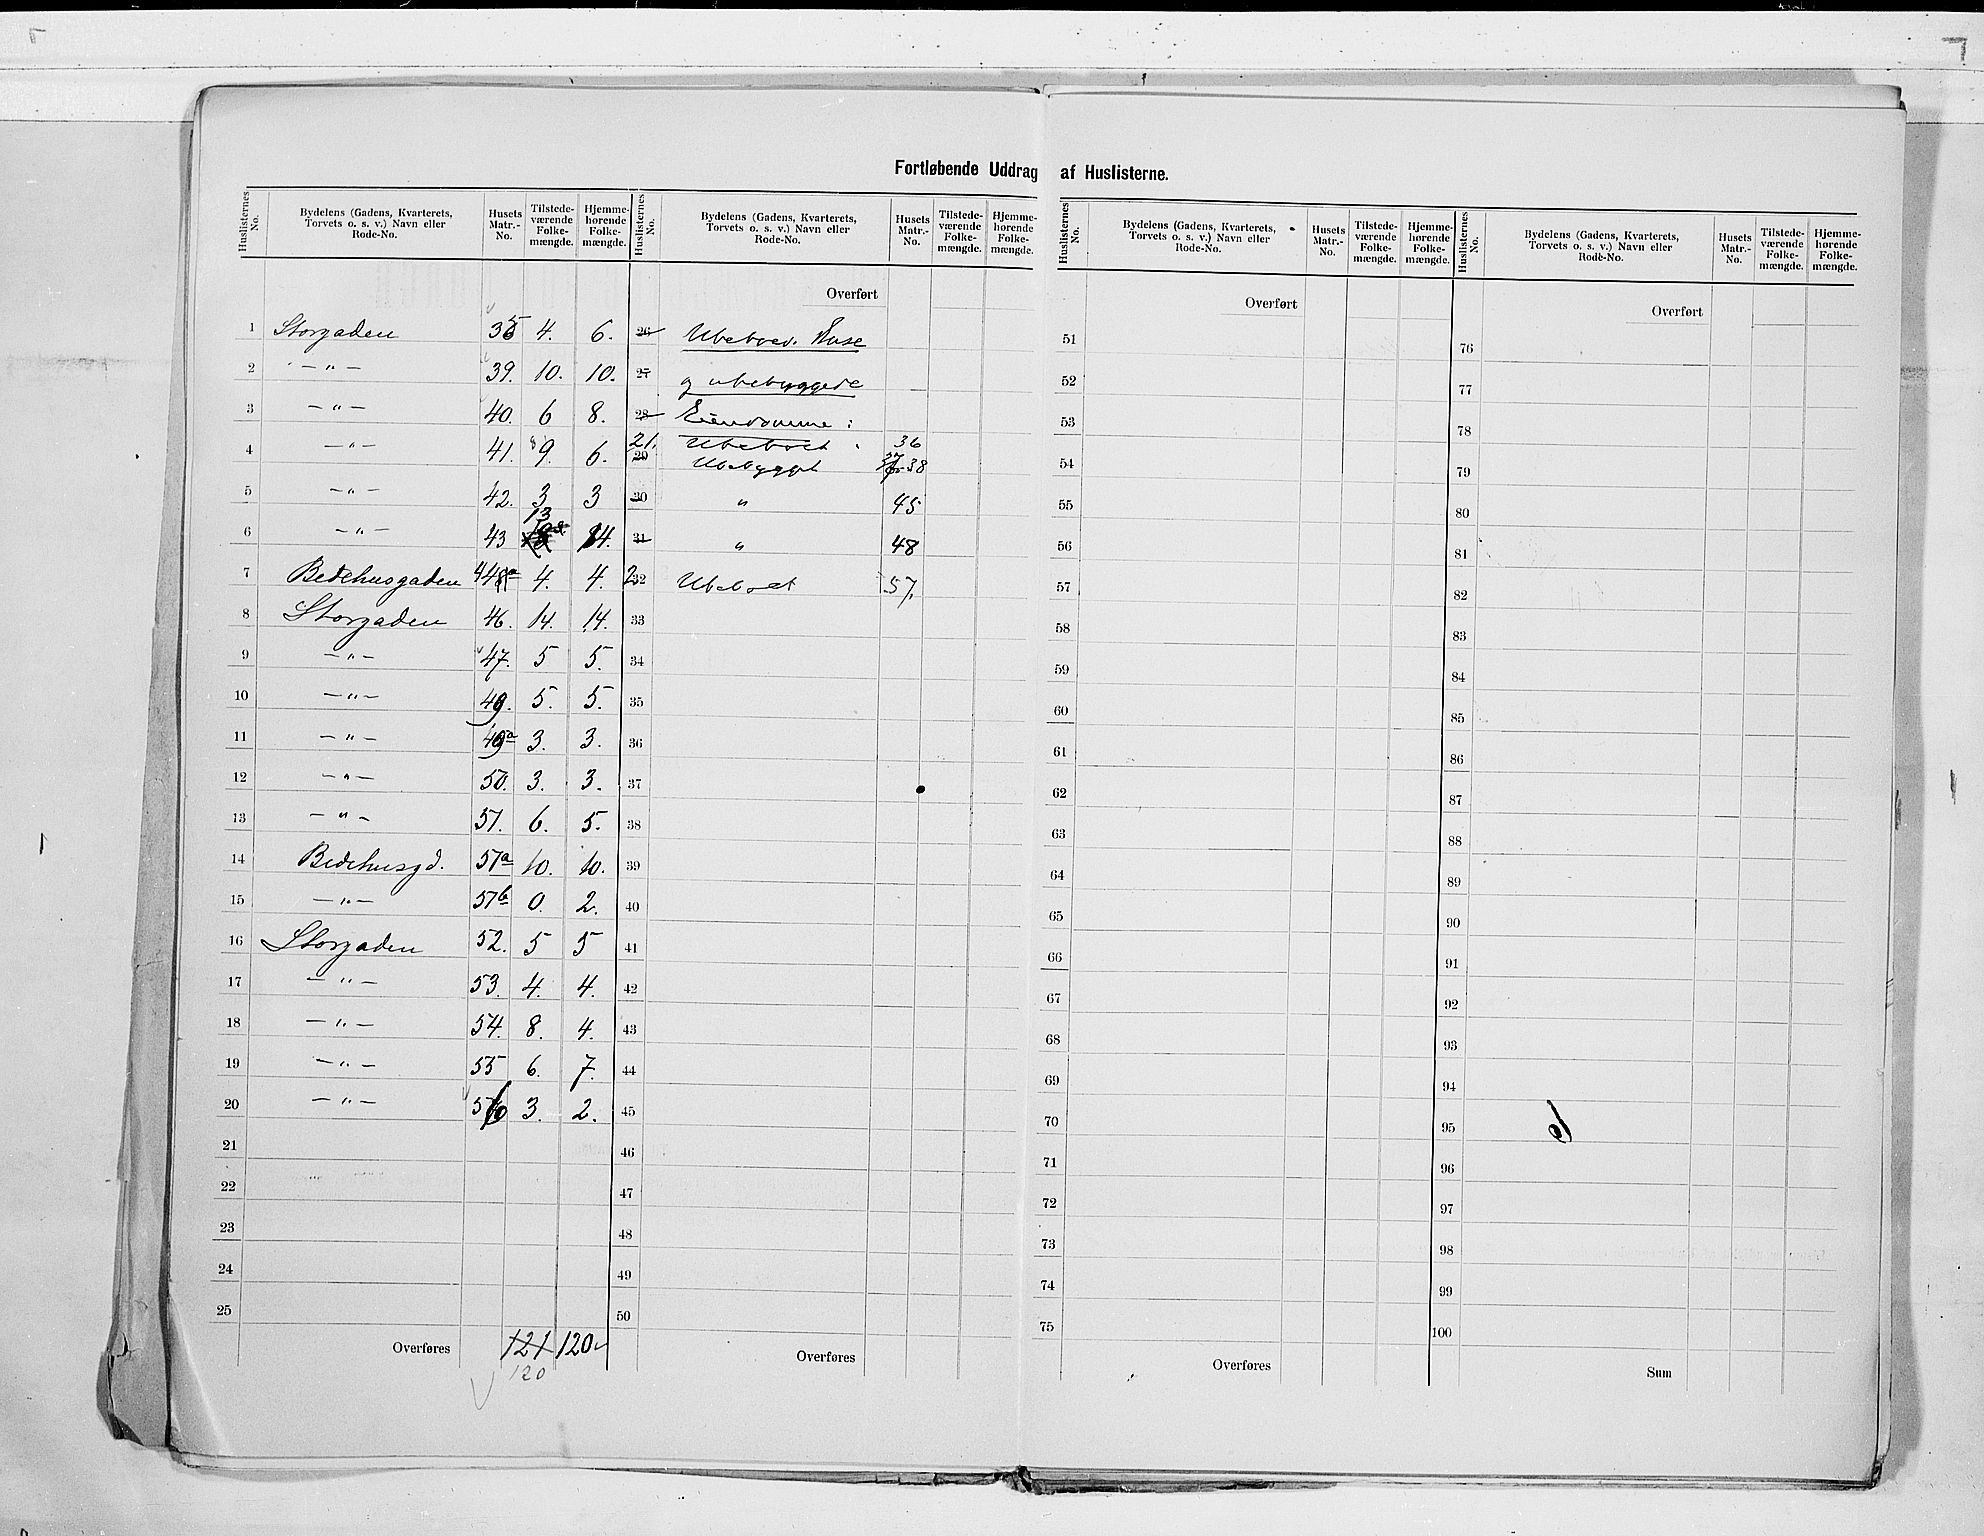 Fortløbende Uddrag af Huslisterne.
Huslisternes No. | Bydelens (Gadens, Kvarterets, Torvets o. s. v.) Navn eller Rode-No. | Husets Matr.-No. | Tilstede-værende Folke-mængde. | Hjemme-hørende Folke-mængde.
1 Storgaden 35 4. 6.
2 — " — 39. 10. 10.
3 — " — 40. 6 8.
4 — " — 41. 9. 6.
5 — " — 42. 3 3
6 — " — 43 13 14.
7 Bedehusgaden 44a 4. 4.
8 Storgaden 46. 14. 14.
9 — " — 47. 5 5.
10 — " — 49. 5. 5.
11 — " — 49a 3. 3.
12 — " — 50. 3. 3.
13 — " — 51. 6. 5.
14 Bedehusgd. 51a 10. 10.
15 — " — 51b 0. 2.
16 Storgaden 52. 5 5
17 — " — 53. 4. 4.
18 — " — 54. 8. 4.
19 — " — 55 6. 7.
20 — " — 56 3. 2.
21
22
23
24
25
Overføres 121 120
120
Huslisternes No. | Bydelens (Gadens, Kvarterets, Torvets o. s. v.) Navn eller Rode-No. | Husets Matr.-No. | Tilstede-værende Folke-mængde. | Hjemme-hørende Folke-mængde.
Overført
26 Ubeboed. Huse
27 og ubebyggede
28 Eiendomme :
21. Ubeboet 36
29 Ubebygget 37 38
30 " 45
31 " 48
32 Ubeboet 57.
33
34
35
36
37
38
39
40
41
42
43
44
45
46
47
48
49
50
Overføres
Huslisternes No. | Bydelens (Gadens, Kvarterets, Torvets o. s. v.) Navn eller Rode-No. | Husets Matr.-No. | Tilstede-værende Folke-mængde. | Hjemme-hørende Folke-mængde.
Overført
51
52
53
54
55
56
57
58
59
60
61
62
63
64
65
66
67
68
69
70
71
72
73
74
75
Overføres
Huslisternes No. | Bydelens (Gadens, Kvarterets, Torvets o. s. v.) Navn eller Rode-No. | Husets Matr.-No. | Tilstede-værende Folke-mængde. | Hjemme-hørende Folke-mængde.
Overført
76
77
78
79
80
81
82
83
84
85
86
87
88
89
90
91
92
93
94
95
96
97
98
99
100
Sum